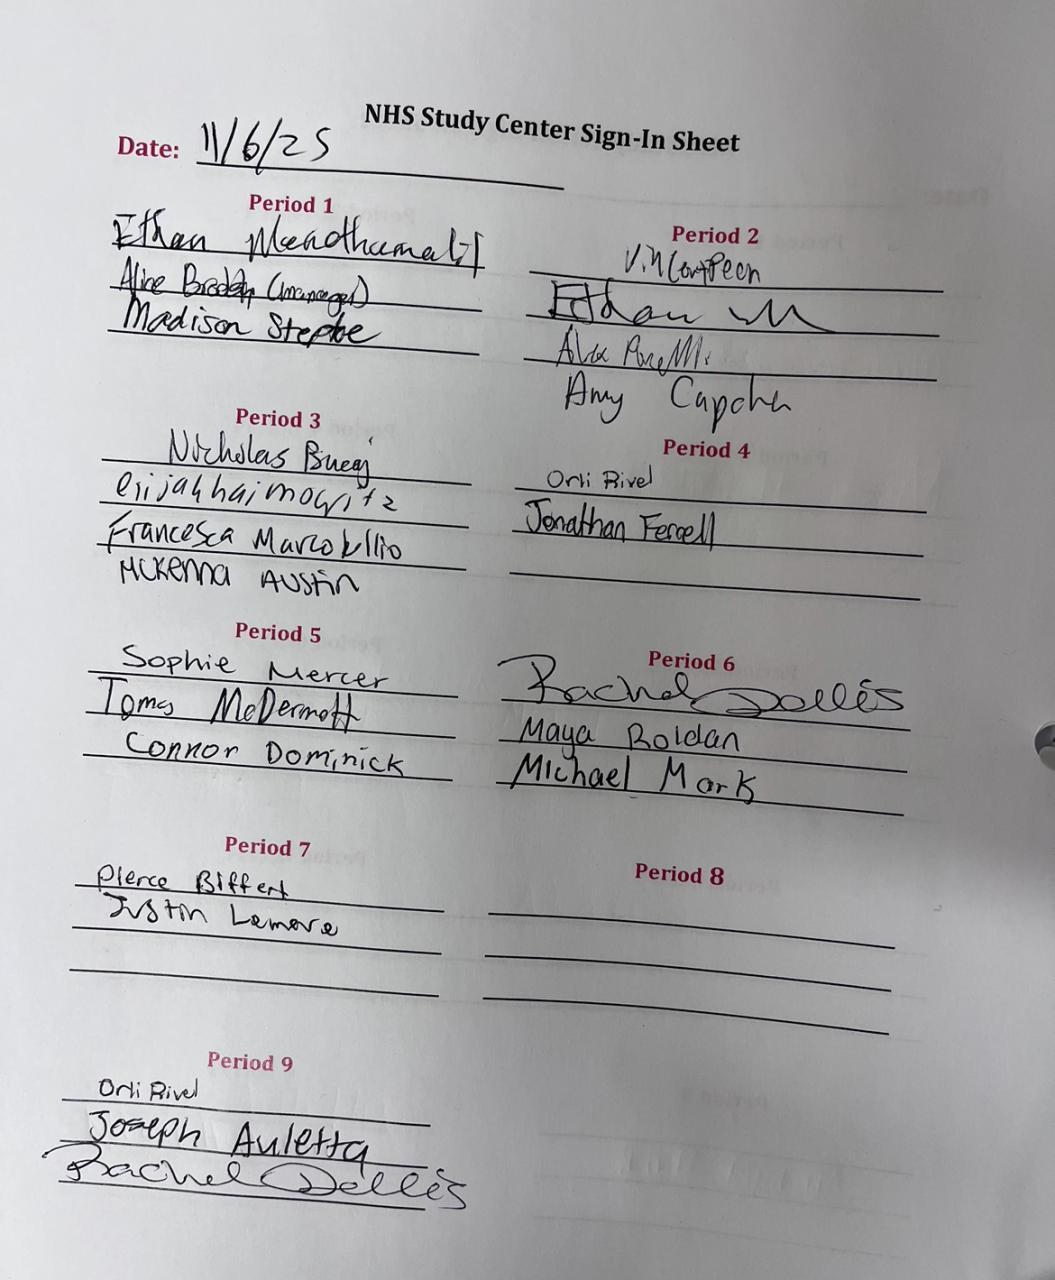 NHS Study Center Sign-In Sheet
Date: 11/6/25
Period 1
Ethan
Alice (manager)
Madison
Period 2
Ethan M
Alex
Amy Capcha
Period 3
Nicholas
elijah haimowitz
Francesca
McKenna Austin
Period 4
Orli Rivel
Jonathan
Period 5
Sophie Mercer
Tomas McDermott
Connor Dominick
Period 6
Rachel Dallés
Maya Roldan
Michael Mark
Period 7
Pierce Biffert
Justin Lamore
Period 8
Period 9
Orli Rivel
Joseph Auletta
Rachel Dallés